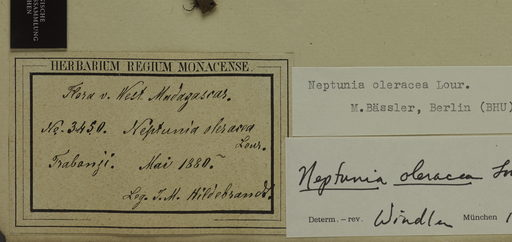 ISCHE
SSAMMLUNG
CHEN
HERBARIUM REGIUM MONACENSE.
Flora v. West Madagascar.
No. 3450. Neptunia oleracea
Lour.
Trabonji. Mai 1880.
Leg. J. M. Hildebrandt.
Neptunia oleracea Lour.
M.Bässler, Berlin (BHU)
Neptunia oleracea
Determ. – rev. Windler München 1